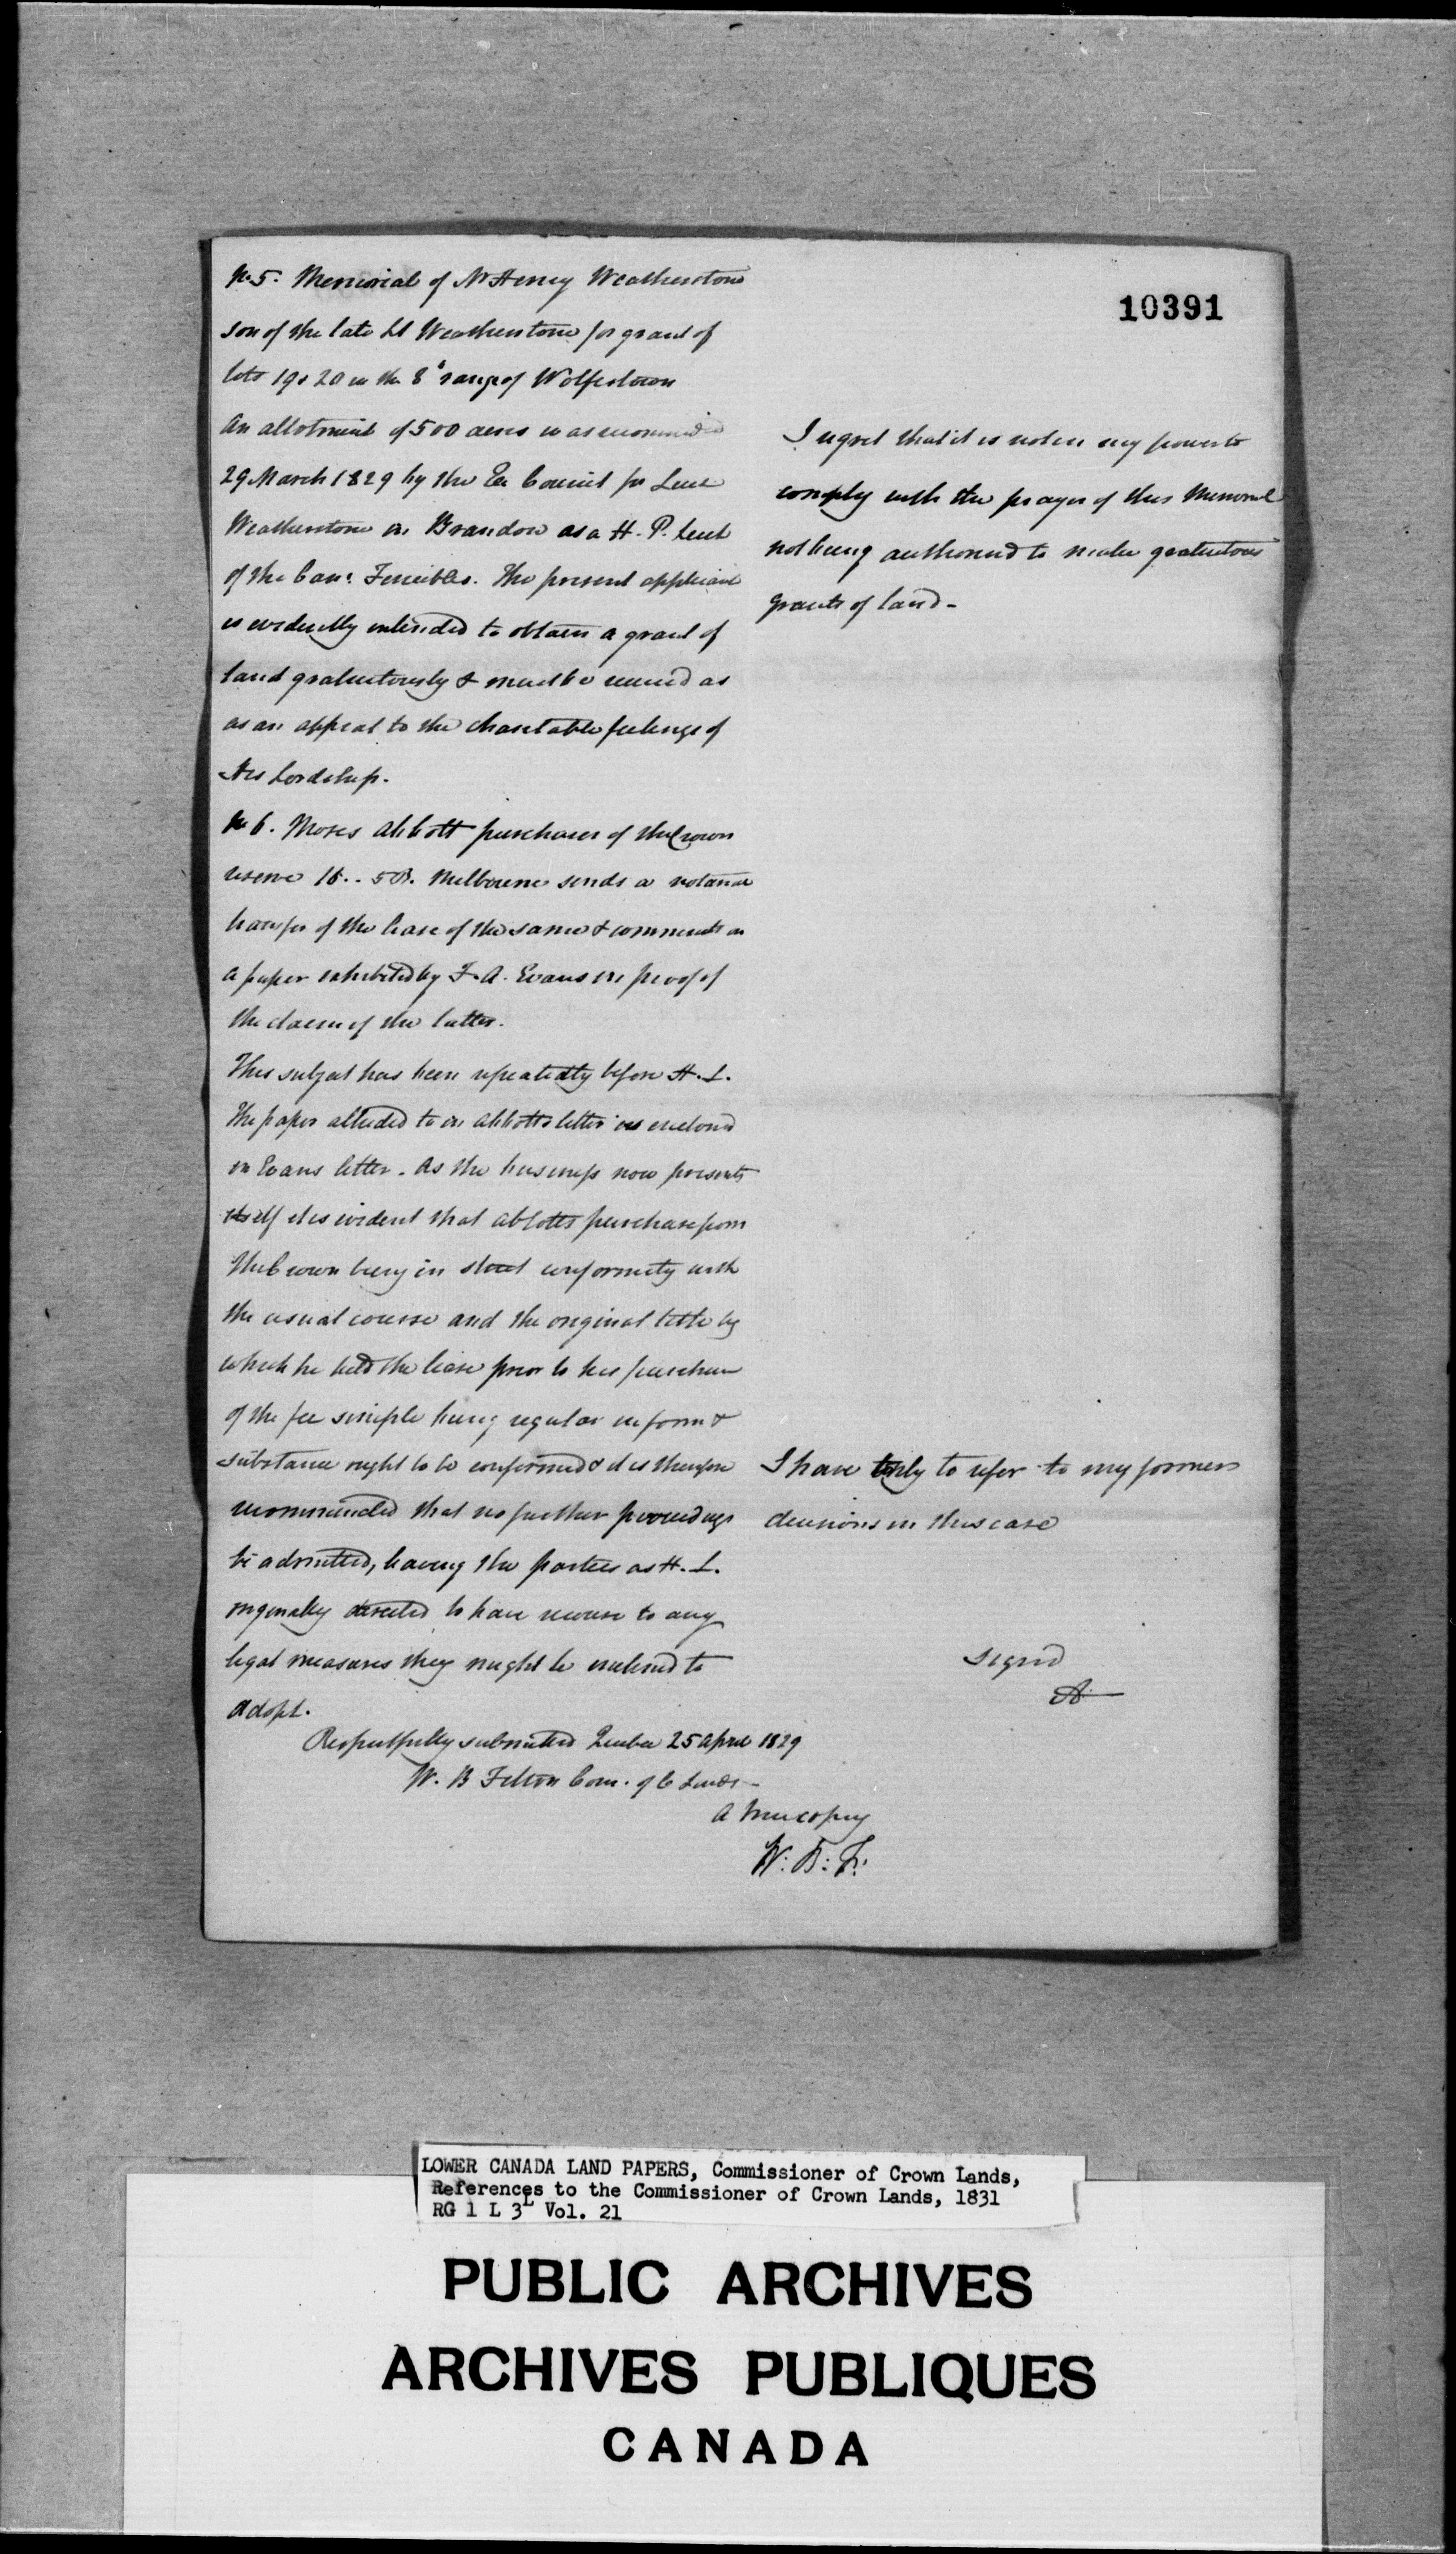 10391
No 5. Memorial of Mr Henry Weatherstone
son of the late Lt Weatherstone for grant of
lots 19 & 20 in the 8th range of Wolfestown
An allotment of 500 acres was recommended
29 March 1829 by the Ex Council for Lieut
Weatherstone in Brandon as a H. P. Lieut
of the Can. Fencibles. The present
is evidently intended to obtain a grant of
land gratuitously & must be viewed as
as an appeal to the charitable feelings of
His Lordship.
I regret that it is not in my power to
comply with the prayer of this Memorial
not being authorized to make gratuitous
grants of land -
No 6. Moses Abbott purchaser of the Crown
reserve 16.. 5 R. Melbourne sends a notarial
transfer of the lease of the same & comments on
a paper exhibited by F. A. Evans in proof of
the claim of the latter.
This subject has been repeatedly before H. L.
The paper alluded to in Abbotts letter is enclosed
in Evans letter. As the business now presents
itself it is evident that Abbotts purchase from
the Crown being in strict conformity with
the usual course and the original title by
which he held the lease prior to his purchase
of the fee simple being regular in form &
substance ought to be confirmed & it is therefore
recommended that no further proceedings
be admitted, leaving the parties as H. L.
originally directed to have recourse to any
legal measures they might be inclined to
adopt.
I have only to refer to my former
decisions in this case
Signd
Respectfully submitted Quebec 25 April 1829
W. B Felton Com. of C Lands -
A true copy
W: B: F:
LOWER CANADA LAND PAPERS, Commissioner of Crown Lands,
References to the Commissioner of Crown Lands, 1831
RG 1 L 3L Vol. 21
PUBLIC ARCHIVES
ARCHIVES PUBLIQUES
CANADA